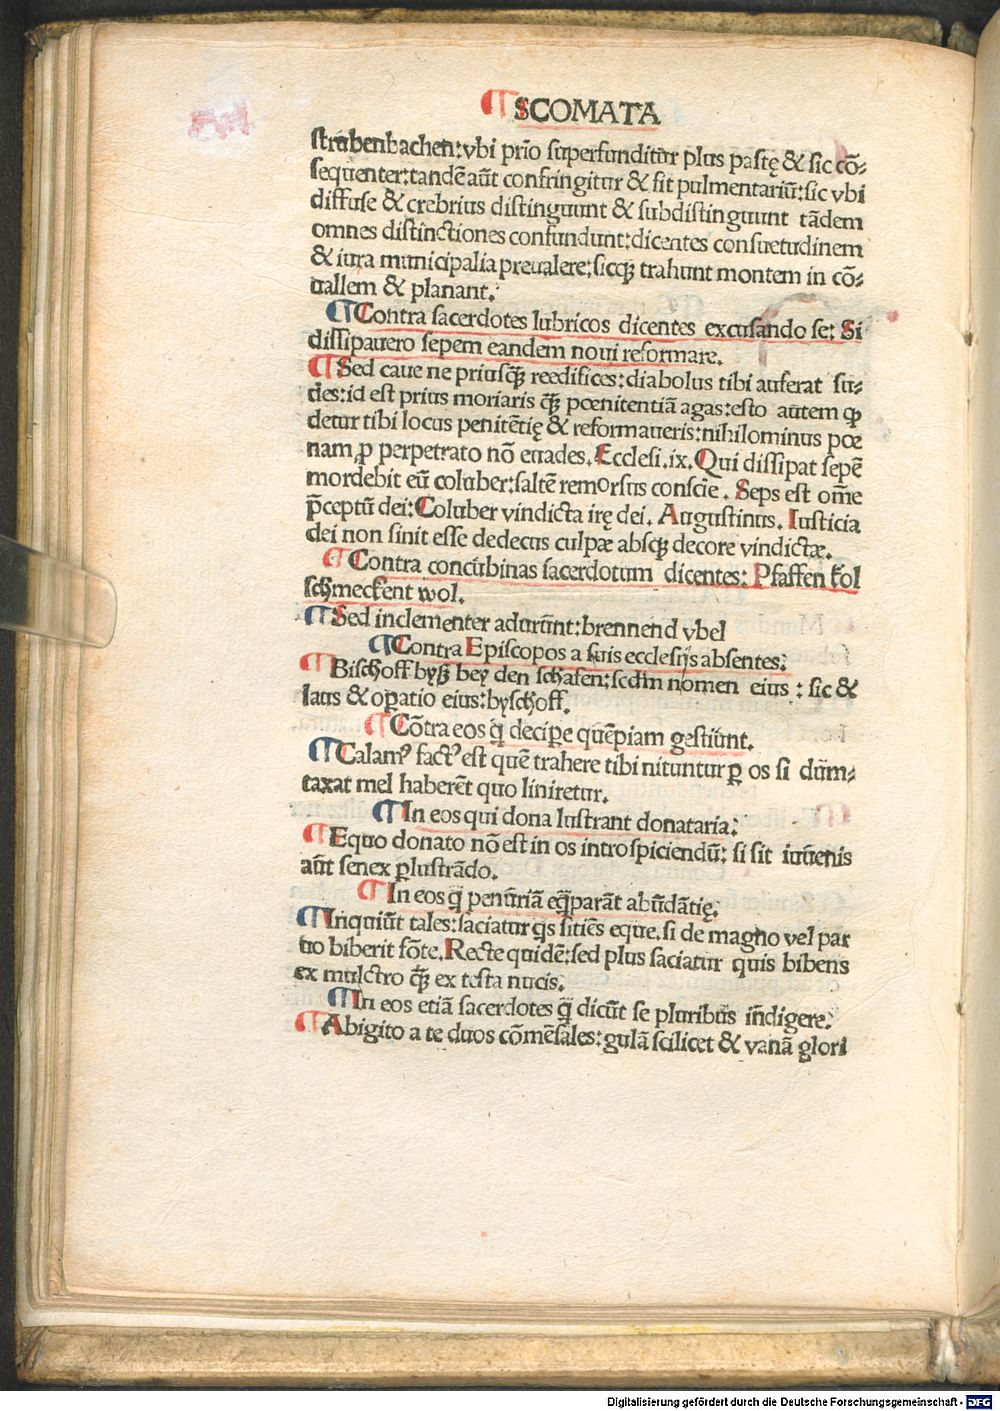 ¶ SCOMATA
strubenbachen: vbi prīo superfunditur plus pastę & sic cō⸗
sequenter: tandē aūt confringitur & fit pulmentariū: sic vbi
diffuse & crebrius distinguunt & subdistinguunt tādem
omnes distinctiones confundunt: dicentes consuetudinem
& iura municipalia preualere: sicqꝫ trahunt montem in cō⸗
uallem & planant.
¶ Contra sacerdotes lubricos dicentes excusando se: Si
dissipauero sepem eandem noui reformare.
¶ Sed caue ne priusqꝫ̄ reedifices: diabolus tibi auferat su⸗
des: id est prius moriaris qꝫ̄ pœnitentiā agas: esto autem ꝙ
detur tibi locus penitētię & reformaueris: nihilominus pœ
nam ꝓ perpetrato nō euades. Ecclesi. ix. Qui dissipat sepē
mordebit eū coluber: saltē remorsus consciē. Seps est om̄e
p̄ceptū dei: Coluber vindicta irę dei. Augustinus. Iusticia
dei non sinit esse dedecus culpæ absqꝫ decore vindictæ.
¶ Contra concubinas sacerdotum dicentes: Pfaffen kol
schmeckent wol.
¶ Sed inclementer adurūnt: brennend vbel
¶ Contra Episcopos a suis ecclesijs absentes:
¶ Bischoff byß bey den schafen: scdm̄ nomen eius: sic &
laus & oꝑatio eius: byschoff.
¶ Cōtra eos q̄ deciꝑe quēpiam gestiunt.
¶ Calamꝰ factꝰ est quē trahere tibi nituntur ꝑ os si dum⸗
taxat mel haberēt quo liniretur.
¶ In eos qui dona lustrant donataria:
¶ Equo donato nō est in os introspiciendū: si sit iuuenis
aūt senex ꝑlustrādo.
¶ In eos q̄ penuriā eq̄parāt abūdātię.
¶ Inquiūt tales: saciatur qͥs sitiēs eque. si de magno vel par
uo biberit fōte. Recte quidē: sed plus saciatur quis bibens
ex mulctro qꝫ̄ ex testa nucis.
¶ In eos etiā sacerdotes q̄ dicūt se pluribus īndigere:
¶ Abigito a te duos cōmēsales: gulā scilicet & vanā glori
Digitalisierung gefördert durch die Deutsche Forschungsgemeinschaft - DFG